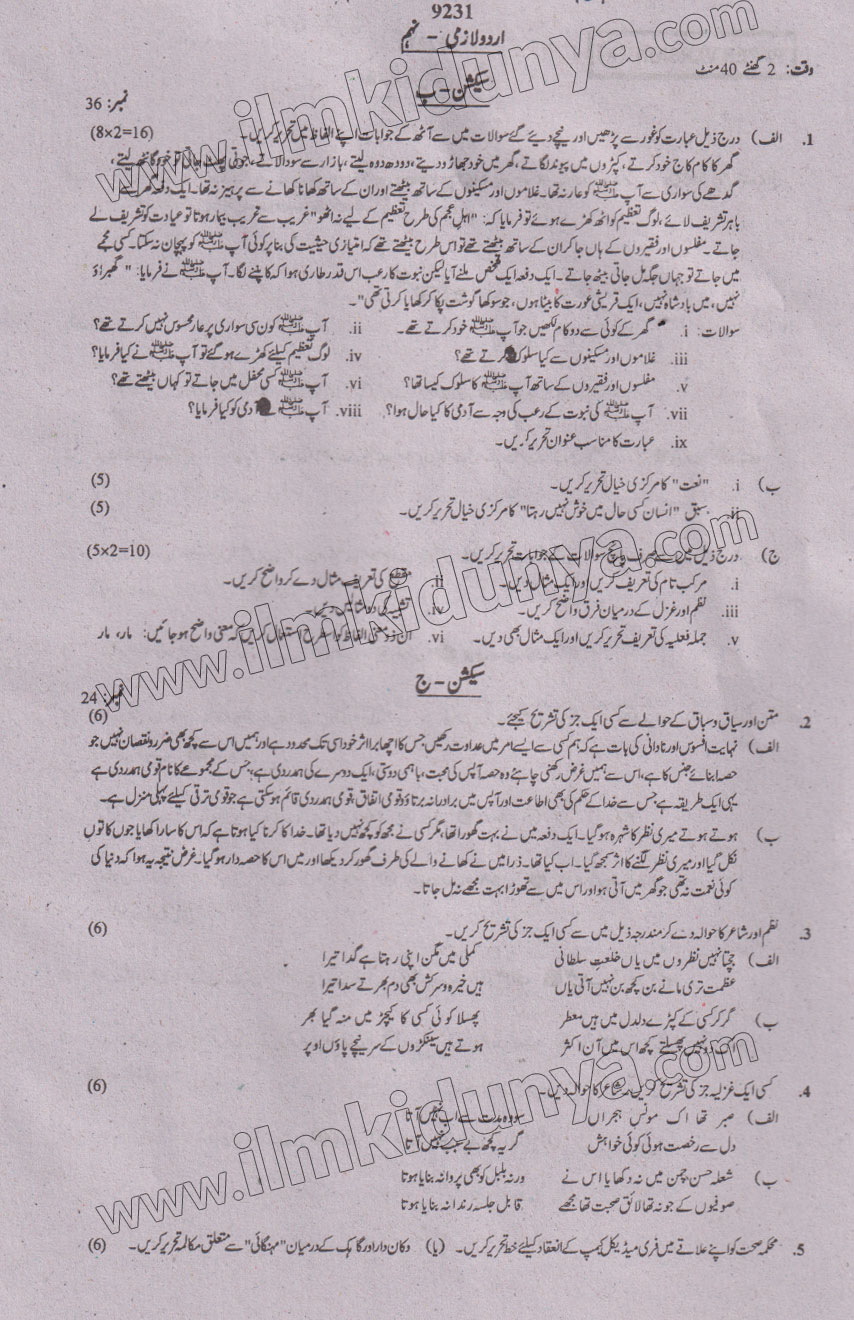 9231
اردو لازمی - نہم
وقت: 2 گھنٹے 40 منٹ
سیکشن - ب
نمبر: 36
1. الف) درج ذیل عبارت کو غور سے پڑھیں اور نیچے دیئے گئے سوالات میں سے آٹھ کے جوابات اپنے الفاظ میں تحریر کریں۔ (8x2=16)
گھر کا کام کاج خود کرتے، کپڑوں میں پیوند لگاتے، گھر میں خود جھاڑو دیتے، دودھ دوہ لیتے، بازار سے سودا لاتے، جوتی پھٹ جاتی تو خود گانٹھ لیتے،
گدھے کی سواری سے آپ ﷺ کو عار نہ تھا۔ غلاموں اور مسکینوں کے ساتھ بیٹھتے اور ان کے ساتھ کھانا کھانے سے پرہیز نہ تھا۔ ایک دفعہ گھر سے
باہر تشریف لائے، لوگ تعظیم کو اٹھ کھڑے ہوئے تو فرمایا کہ: "اہل عجم کی طرح تعظیم کے لیے نہ اٹھو" غریب سے غریب بیمار ہوتا تو عیادت کو تشریف لے
جاتے۔ مفلسوں اور فقیروں کے ہاں جا کر ان کے ساتھ بیٹھتے تھے تو اس طرح بیٹھتے تھے کہ امتیازی حیثیت کی بنا پر کوئی آپ ﷺ کو پہچان نہ سکتا۔ کسی مجمعے
میں جاتے تو جہاں جگہ مل جاتی بیٹھ جاتے۔ ایک دفعہ ایک شخص ملنے آیا لیکن نبوت کا رعب اس قدر طاری ہوا کہ کانپنے لگا۔ آپ ﷺ نے فرمایا: "گھبراؤ
نہیں، میں بادشاہ نہیں، ایک قریشی عورت کا بیٹا ہوں، جو سوکھا گوشت پکا کر کھایا کرتی تھی"۔
سوالات: i. گھر کے کوئی سے دو کام لکھیں جو آپ ﷺ خود کرتے تھے۔ ii. آپ ﷺ کون سی سواری پر عار محسوس نہیں کرتے تھے؟
iii. غلاموں اور مسکینوں سے کیا سلوک کرتے تھے؟ iv. لوگ تعظیم کیلئے کھڑے ہو گئے تو آپ ﷺ نے کیا فرمایا؟
v. مفلسوں اور فقیروں کے ساتھ آپ ﷺ کا سلوک کیسا تھا؟ vi. آپ ﷺ کسی محفل میں جاتے تو کہاں بیٹھتے تھے؟
vii. آپ ﷺ کی نبوت کے رعب کی وجہ سے آدمی کا کیا حال ہوا؟ viii. آپ ﷺ نے آدمی کو کیا فرمایا؟
ix. عبارت کا مناسب عنوان تحریر کریں۔
ب) i. "نعت" کا مرکزی خیال تحریر کریں۔ (5)
ii. سبق "انسان کسی حال میں خوش نہیں رہتا" کا مرکزی خیال تحریر کریں۔ (5)
ج) درج ذیل میں سے صرف پانچ سوالات کے جوابات تحریر کریں۔ (5x2=10)
i. مرکب تام کی تعریف کریں اور ایک مثال دیں۔ ii. مقطع کی تعریف مثال دے کر واضح کریں۔
iii. نظم اور غزل کے درمیان فرق واضح کریں۔ iv. تشبیہ کی دو مثالیں دیں۔
v. جملہ فعلیہ کی تعریف تحریر کریں اور ایک مثال بھی دیں۔ vi. ان ذو معنی الفاظ کو اسطرح استعمال کریں کہ معنی واضح ہو جائیں: مار، مار
سیکشن - ج
نمبر: 24
2. متن اور سیاق و سباق کے حوالے سے کسی ایک جز کی تشریح کیجئے۔ (6)
الف) نہایت افسوس اور نادانی کی بات ہے کہ ہم کسی سے ایسے امر میں عداوت رکھیں جس کا اچھا برا اثر خود اسی تک محدود ہے اور ہمیں اس سے کچھ بھی ضرر و نقصان نہیں جو
حصہ ابنائے جنس کا ہے، اس سے ہمیں غرض رکھنی چاہئے وہ حصہ آپس کی محبت، باہمی دوستی، ایک دوسرے کی ہمدردی ہے، جس کے مجموعے کا نام قومی ہمدردی ہے
یہی ایک طریقہ ہے جس سے خدا کے حکم کی بھی اطاعت اور آپس میں برادرانہ برتاؤ قومی اتفاق، قومی ہمدردی قائم ہو سکتی ہے جو قومی ترقی کیلئے پہلی منزل ہے۔
ب) ہوتے ہوتے میری نظر کا شہرہ ہو گیا۔ ایک دفعہ میں نے بہت گھورا تھا، مگر کسی نے مجھ کو کچھ نہیں دیا تھا۔ خدا کا کرنا کیا ہوتا ہے کہ اس کا سارا کھایا جوں کا توں
نکل گیا اور میری نظر لگنے کا اثر سمجھا گیا۔ اب کیا تھا۔ ذرا میں نے کھانے والے کی طرف گھور کر دیکھا اور میں اس کا حصہ دار ہو گیا۔ غرض نتیجہ یہ ہوا کہ دنیا کی
کوئی نعمت نہ تھی جو گھر میں آتی ہو اور اس میں سے تھوڑا بہت مجھے نہ مل جاتا۔
3. نظم اور شاعر کا حوالہ دے کر مندرجہ ذیل میں سے کسی ایک جز کی تشریح کریں۔ (6)
الف) جچتا نہیں نظروں میں یاں خلعتِ سلطانی کملی میں مگن اپنی رہتا ہے گدا تیرا
عظمت تری مانے بن کچھ بن نہیں آتی یاں ہیں خیرہ و سرکش بھی دم بھرتے سدا تیرا
ب) گر کر کسی کے کپڑے دلدل میں ہیں معطر پھسلا کوئی کسی کا کیچڑ میں منہ گیا بھر
اک دو نہیں پھسلتے کچھ اس میں آن اکثر ہوتے ہیں سینکڑوں کے سر نیچے پاؤں اوپر
4. کسی ایک غزلیہ جز کی تشریح کریں، شاعر کا حوالہ دیں۔ (6)
الف) صبر تھا اک مونسِ ہجراں سو وہ مدت سے اب نہیں آتا
دل سے رخصت ہوئی کوئی خواہش گریہ کچھ بے سبب نہیں آتا
ب) شعلہ حسن چمن میں نہ دکھایا اس نے ورنہ بلبل کو بھی پروانہ بنایا ہوتا
صوفیوں کے جو نہ تھا لائق صحبت تھا مجھے قابل جلسہ رندانہ بنایا ہوتا
5. محکمہ صحت کو اپنے علاقے میں فری میڈیکل کیمپ کے انعقاد کیلئے خط تحریر کریں۔ (یا) دکان دار اور گاہک کے درمیان "مہنگائی" سے متعلق مکالمہ تحریر کریں۔ (6)
www.ilmkidunya.com
www.ilmkidunya.com
www.ilmkidunya.com